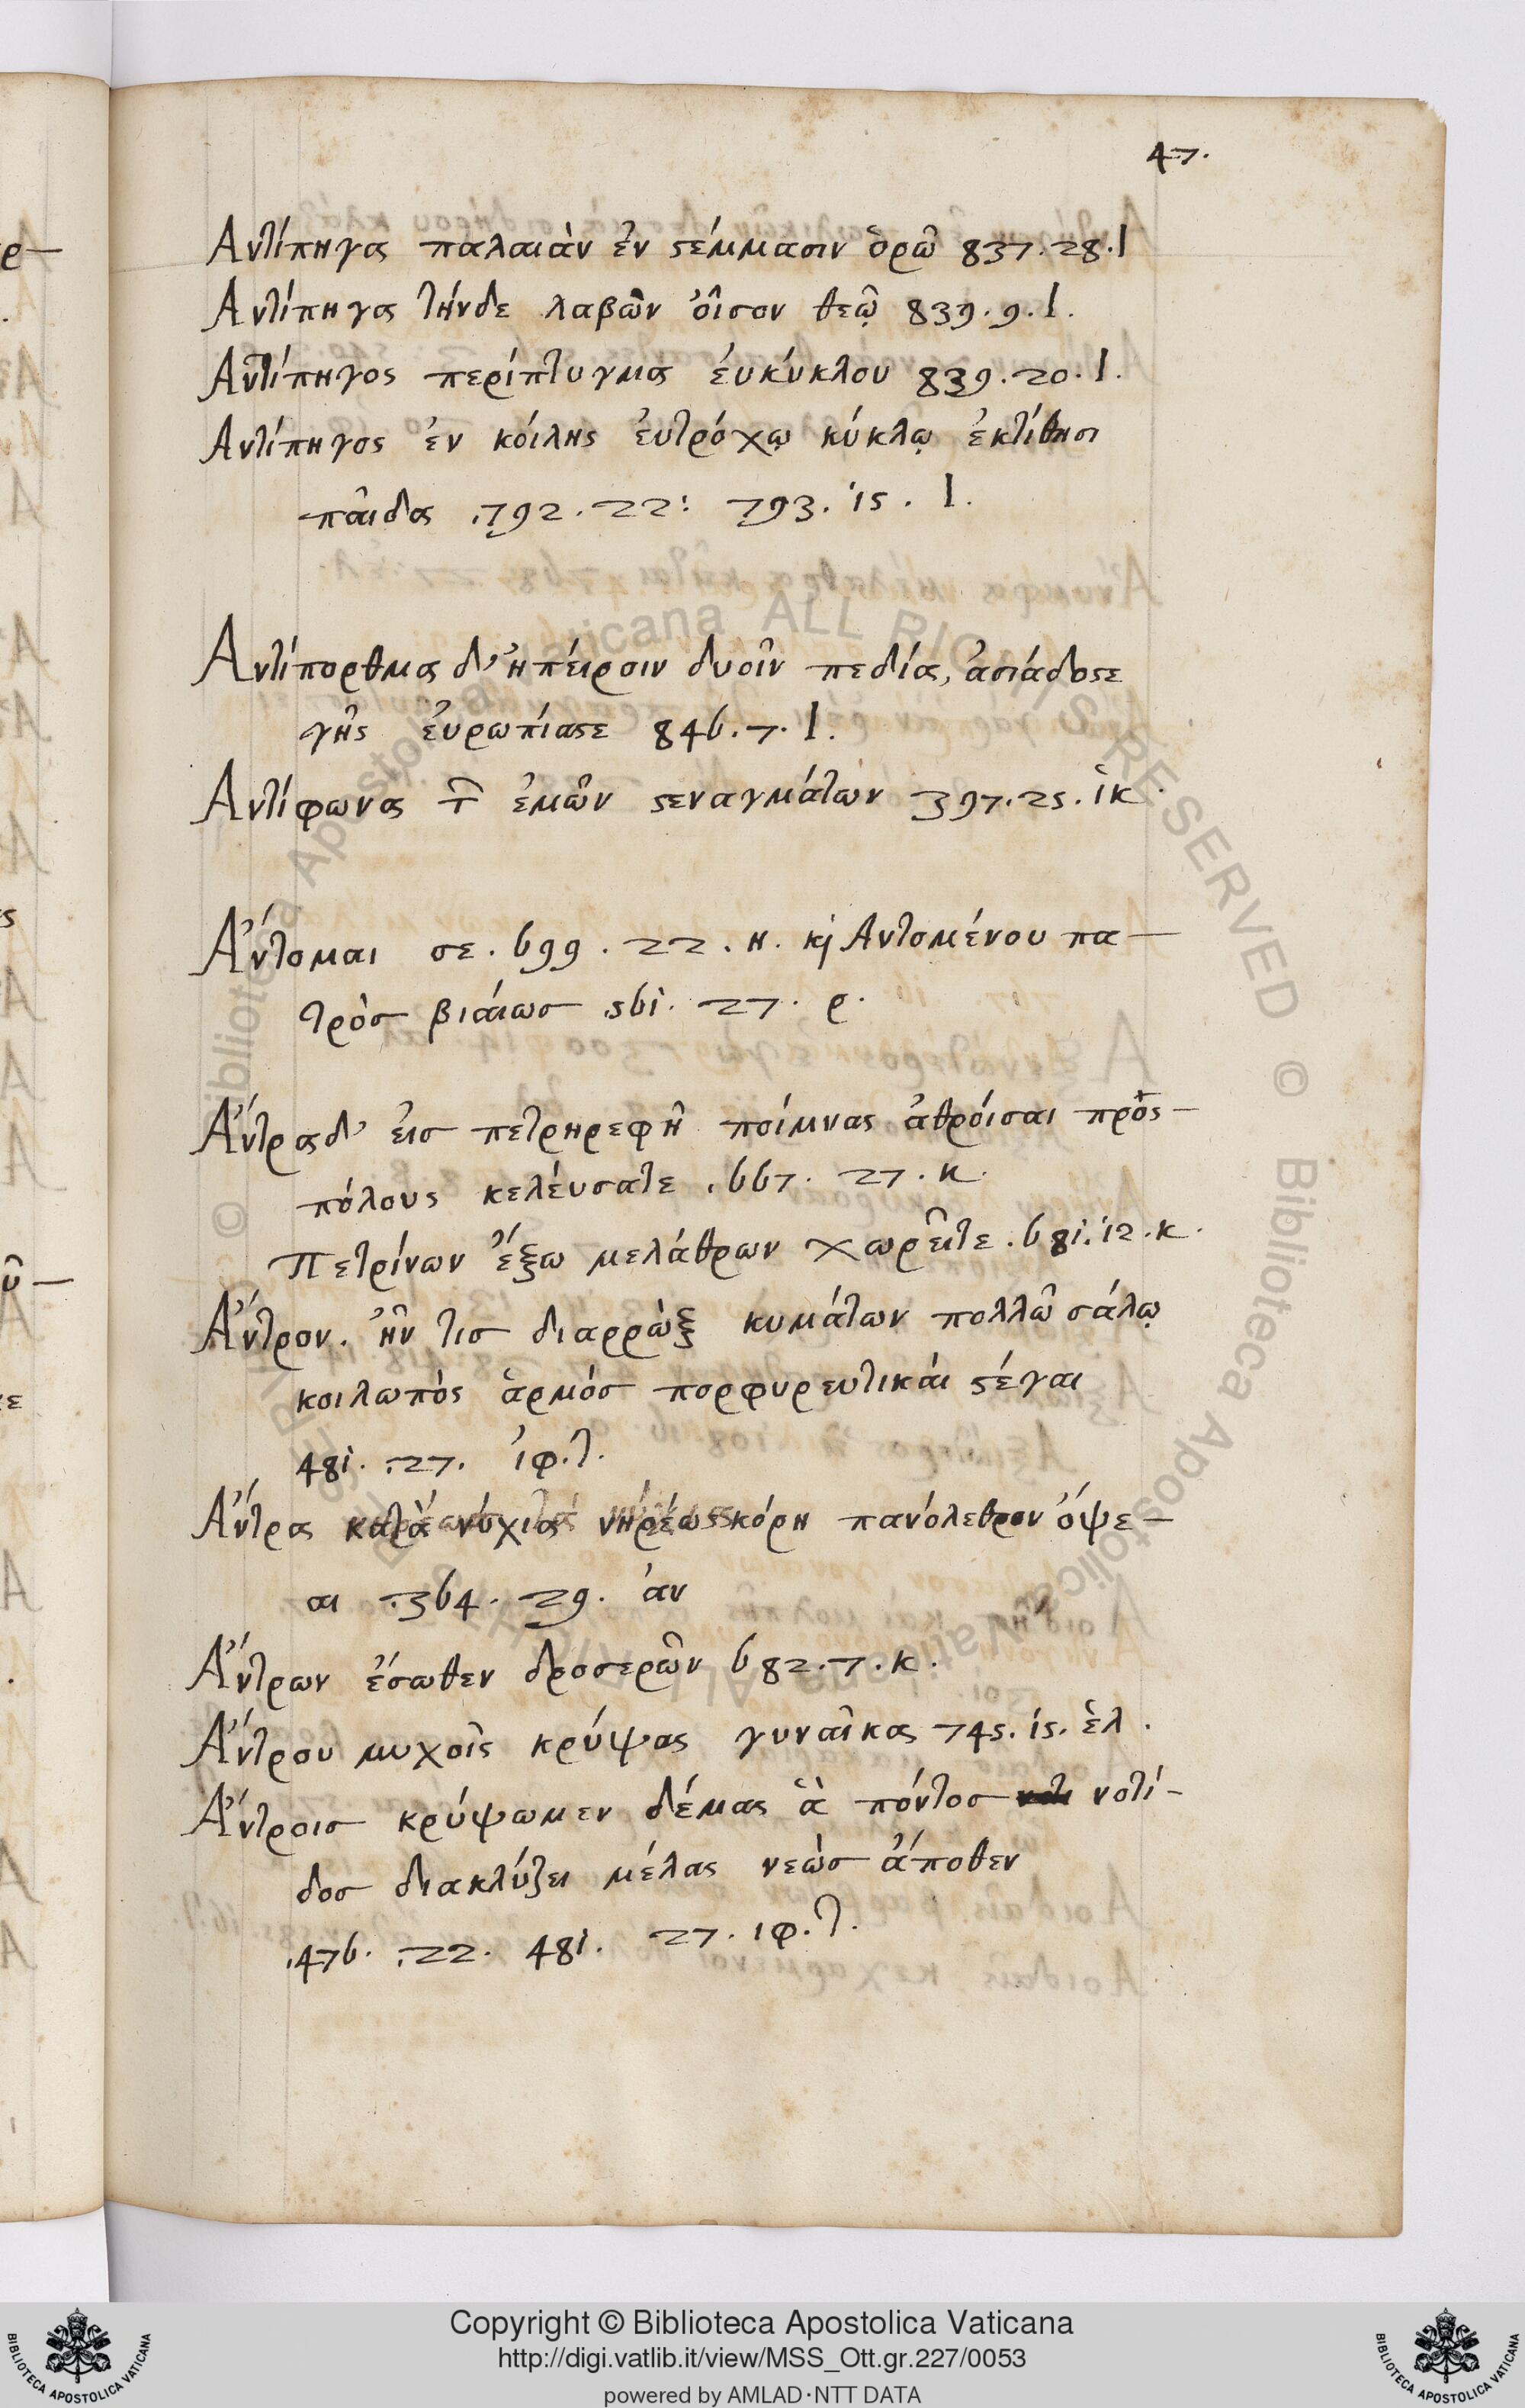 47.
Αντίπηγα παλαιὰν ἐν ϛέμμασιν ὁρῶ 837.28.Ι
Αντίπηγα τήνδε λαβὼν ὄισον θεῶ 839.9.Ι.
Αντίπηγος περίπτυγμα ἐυκύκλου 839.20.Ι.
Αντίπηγος ἐν κόιλης ἐυτρόχῳ κύκλῳ ἐκτίθησι
πᾶιδα .792.22: 793.15.Ι.
Αντίπορθμα δ' ἠπέιροιν δυοῖν πεδία, ἀσιάδοσε
γῆς ἐυρωπίασε 846.7.Ι.
Αντίφωνα τ͂ ἐμῶν ϛεναγμάτων 397.25.ἱκ.
Ἄντομαι σε.699.22.κ. κϳ Αντομένου πα–
τρὸσ βιάιωσ 561.27.ρ.
Ἄντρα δ' ἐισ πετρηρεφῆ ποίμνας ἀθρόισαι πρὸς–
πόλους κελέυσατε .667.27.κ.
Πετρίνων ἔξω μελάθρων χωρεῖτε.681.12.κ.
Ἄντρον. ἦν τισ διαρρὼξ κυμάτων πολλῶ σάλῳ
κοιλωπὸς ἁρμόσ πορφυρευτικάι ϛέγαι
481.27. ἰφ.τ.
Ἄντρα κατὰ νύχια νηρέως κόρη πανόλεθρον ὄψε–
αι .364.29. ἀν
Ἄντρων ἔσωθεν δροσερῶν 682.7.κ.
Ἄντρου μυχοῖς κρύψας γυναῖκα 745.15.ἑλ.
Ἄντροισ κρύψωμεν δέμας ἃ πόντοσ νοτί–
δοσ διακλύζει μέλας νεὼσ ἄποθεν
.476. .22. 481. 27.ιφ.τ.
Copyright © Biblioteca Apostolica Vaticana
http://digi.vatlib.it/view/MSS_Ott.gr.227/0053
powered by AMLAD·NTT DATA